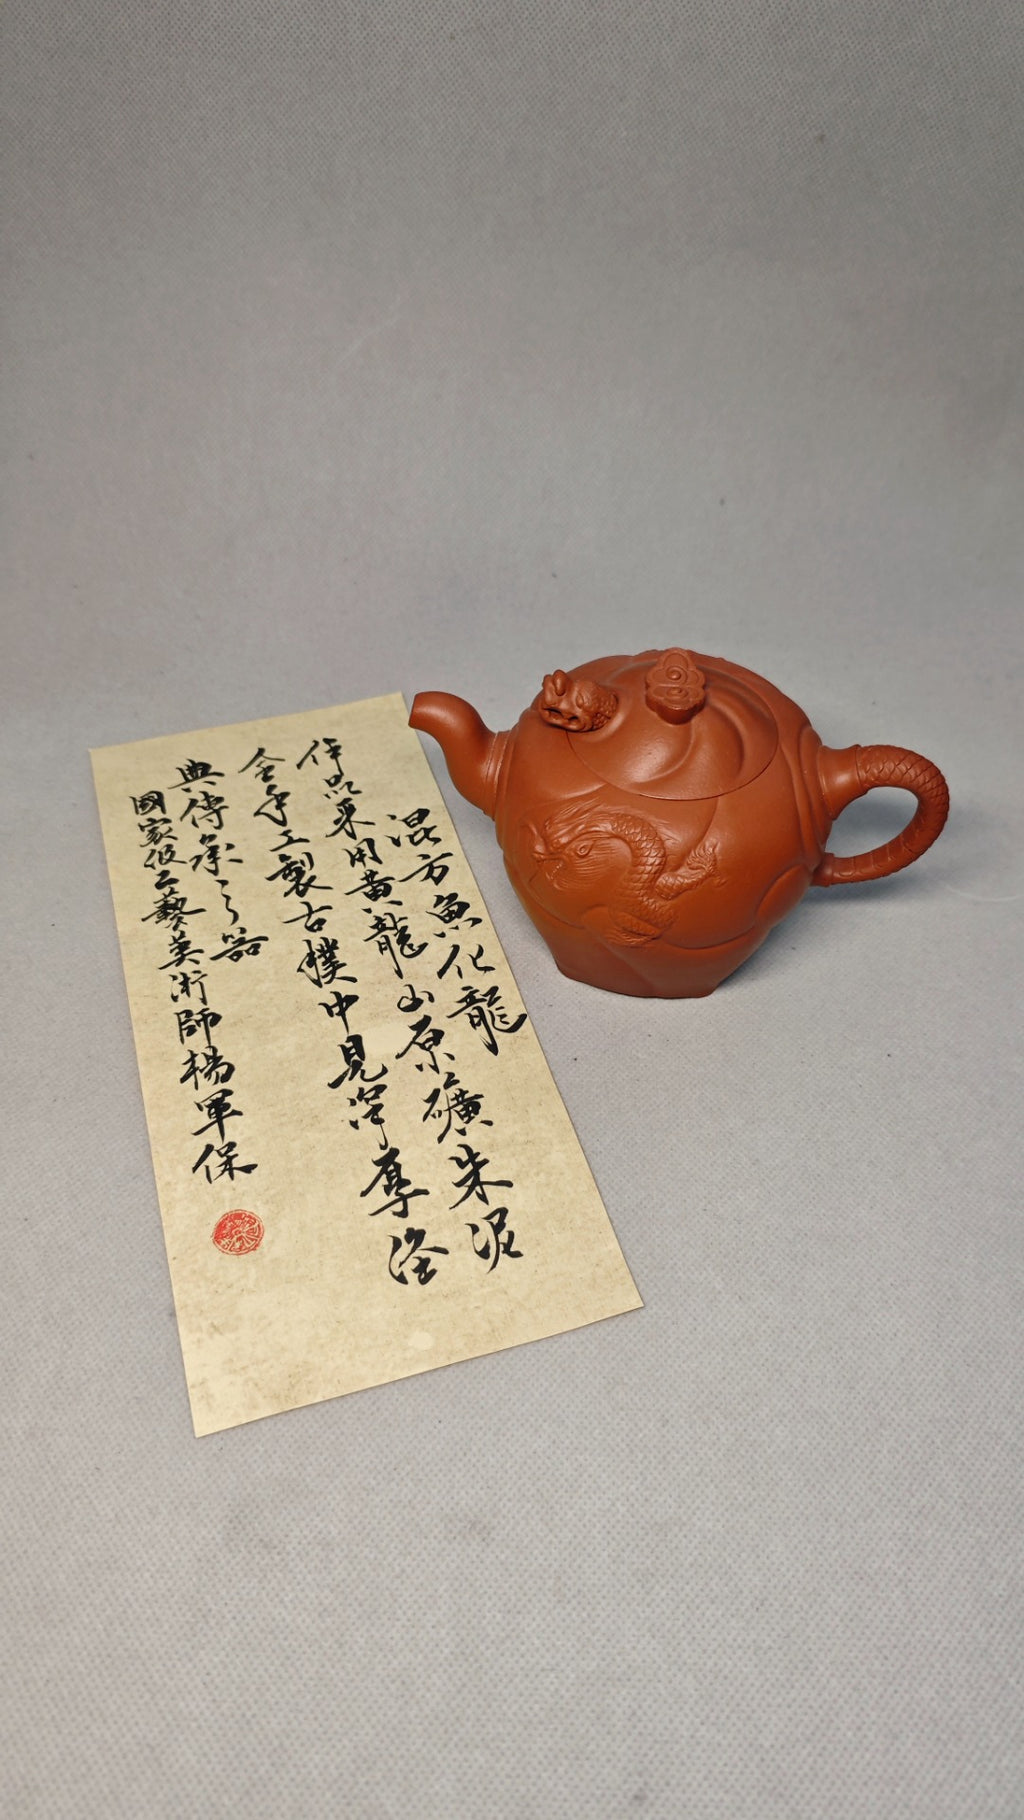 混方魚化龍
作品采用黄龍山原礦朱泥
全手工製古樸中見渾厚淦
典傳承之器
國家级工藝美術師楊軍保